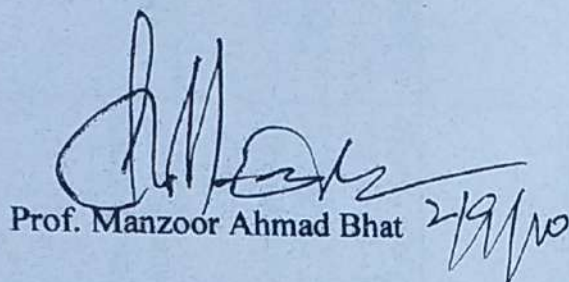 Prof. Manzoor Ahmad Bhat 2/9/10